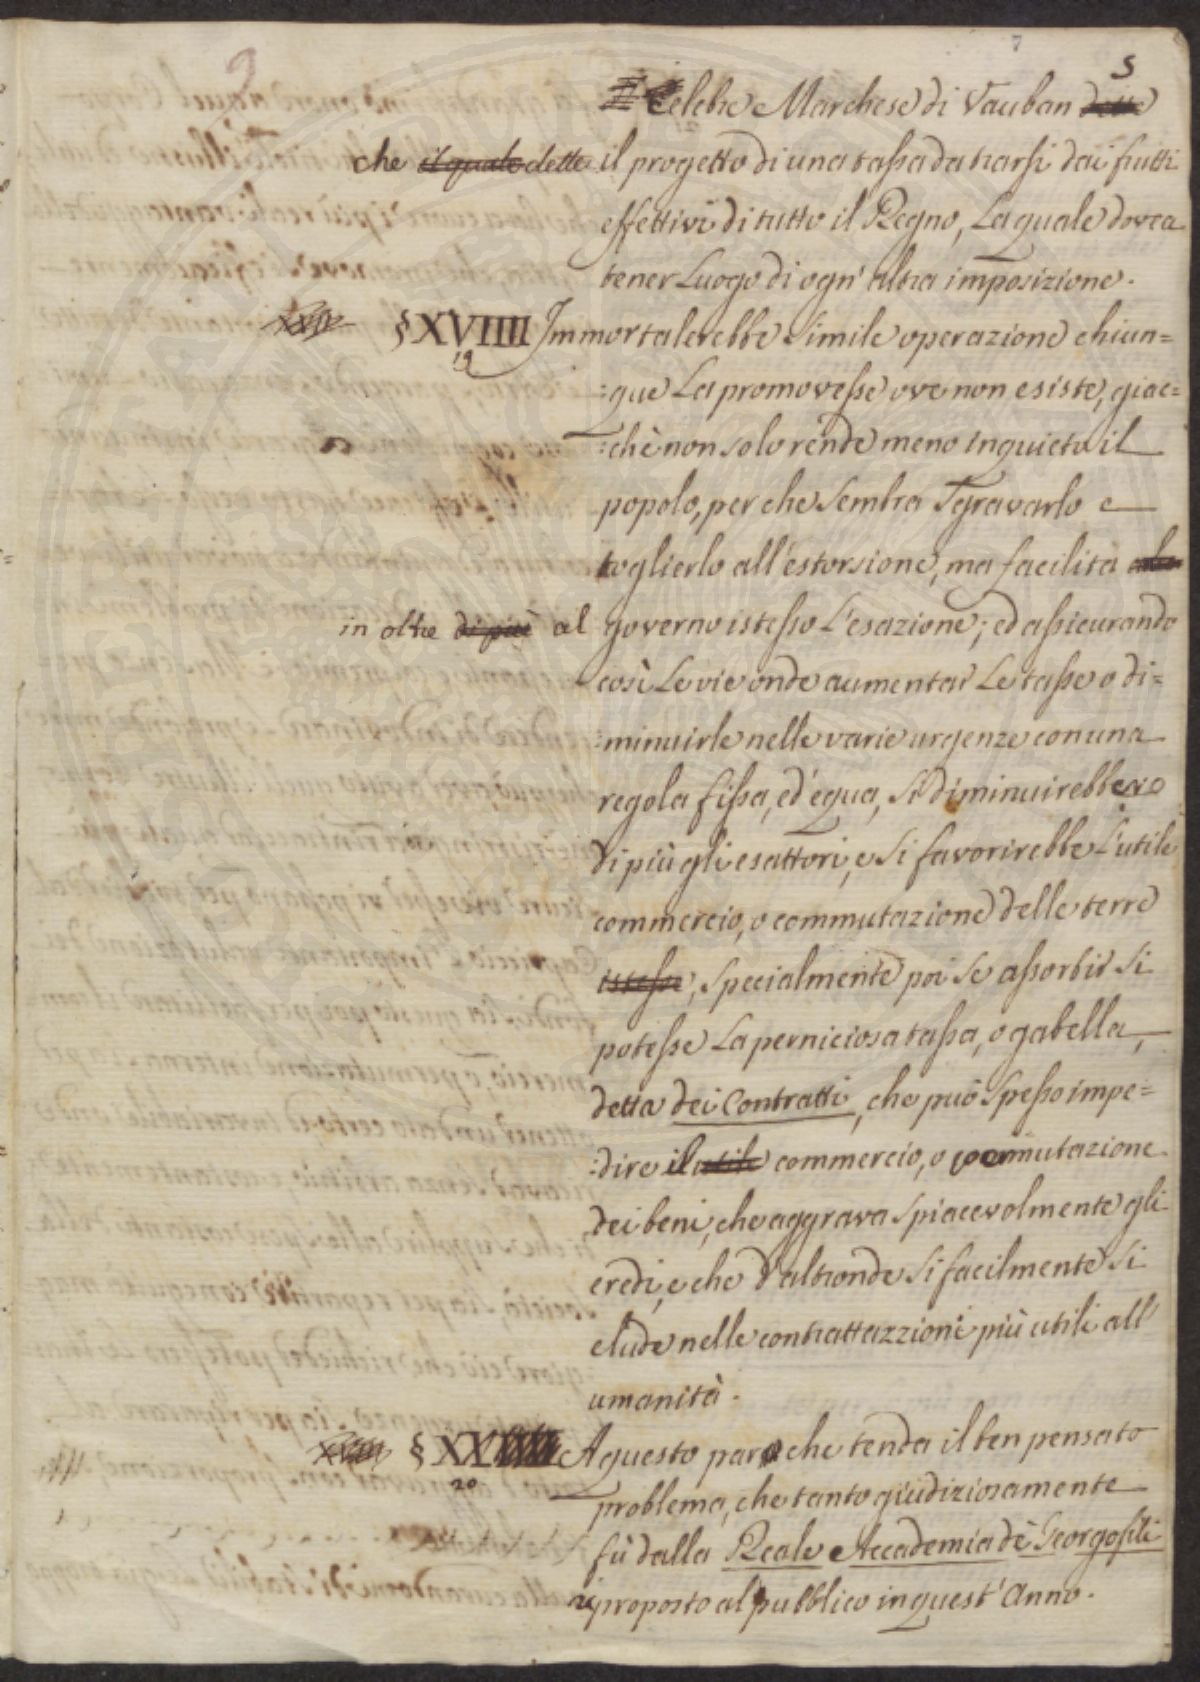 7
5
9
Celebre Marchese di Vauban dette
che il quale dette il progetto di una tassa da trarsi dai frutti
effettivi di tutto il Regno, la quale dovea
tener luogo di ogn' altra imposizione.
§ XVIIII Immortalerebbe simile operazione chiun=
19
:que la promovesse ove non esiste, giac=
:chè non solo rende meno inquieto il
popolo, per che sembra sgravarlo e
toglierlo all'estorsione, ma facilita
in oltre di più al governo istesso l'esazione; ed assicurando
così le vie onde aumentar le tasse o di=
:minuirle nelle varie urgenze con una
regola fissa, ed equa, si diminuirebbero
di più gli esattori, e si favorirebbe l'utile
commercio, o commutazione delle terre
istesse, specialmente poi se assorbir si
potesse la perniciosa tassa, o gabella,
detta dei Contratti, che può spesso impe=
:dire il utile commercio, o permutazione
dei beni, che aggrava spiacevolmente gli
eredi, e che d'altronde si facilmente si
elude nelle contrattazzioni più utili all'
umanità.
§ XX A questo par che tenda il ben pensato
20
problema, che tanto giudiziosamente
fù dalla Reale Accademia dè Georgofili
proposto al pubblico in quest' Anno.